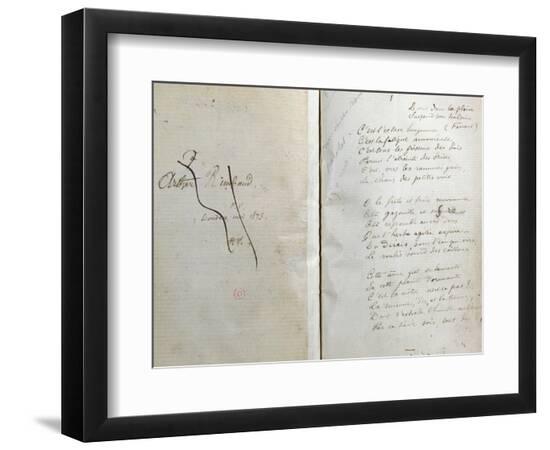 à
Arthur Rimbaud.
P.V.
Londres, mai 1873.
Le vent dans la plaine
Suspend son haleine
(Favart)
C'est l'extase langoureuse
C'est la fatigue amoureuse
C'est tous les frissons des bois
Parmi l'étreinte des brises
C'est, vers les ramures grises,
Le chœur des petites voix
O le frêle et frais murmure
Cela gazouille et
Cela ressemble au cri doux
Que l'herbe agitée expire
Tu dirais, sous l'eau qui vire,
Le roulis sourd des cailloux
Cette âme qui se lamente
En cette plainte dormante
C'est la nôtre, n'est-ce pas ?
La mienne, dis, et la tienne,
Dont s'exhale l'humble antienne
Par ce tiède soir, tout bas